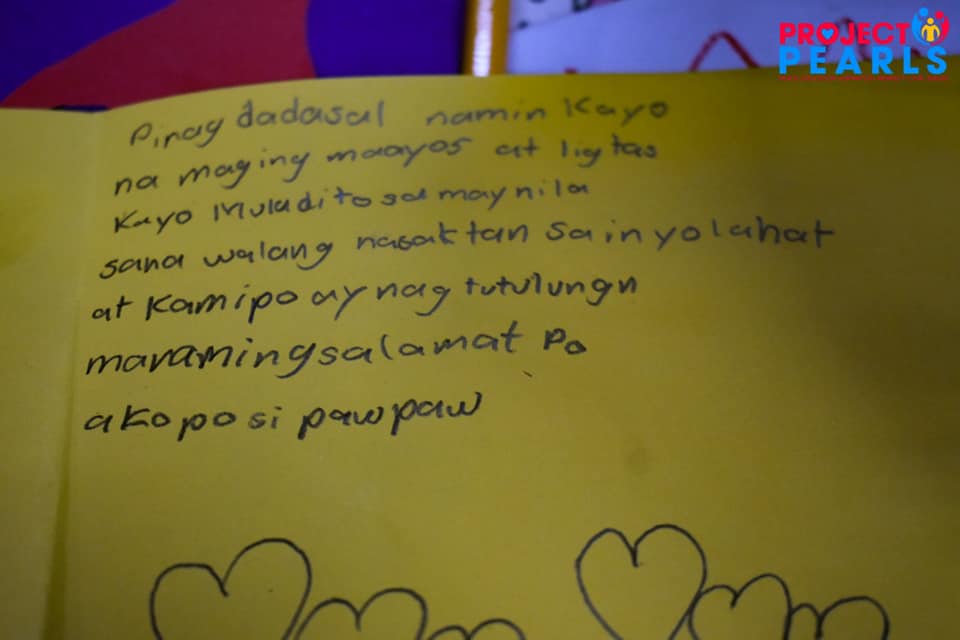 PROJECT
PEARLS
Pinag dadasal namin Kayo
na maging maayos at ligtas
Kayo Mula dito sa may nila
sana walang nasaktan sa inyo lahat
at Kami po ay nag tutulungn
maraming salamat Po
ako po si paw paw